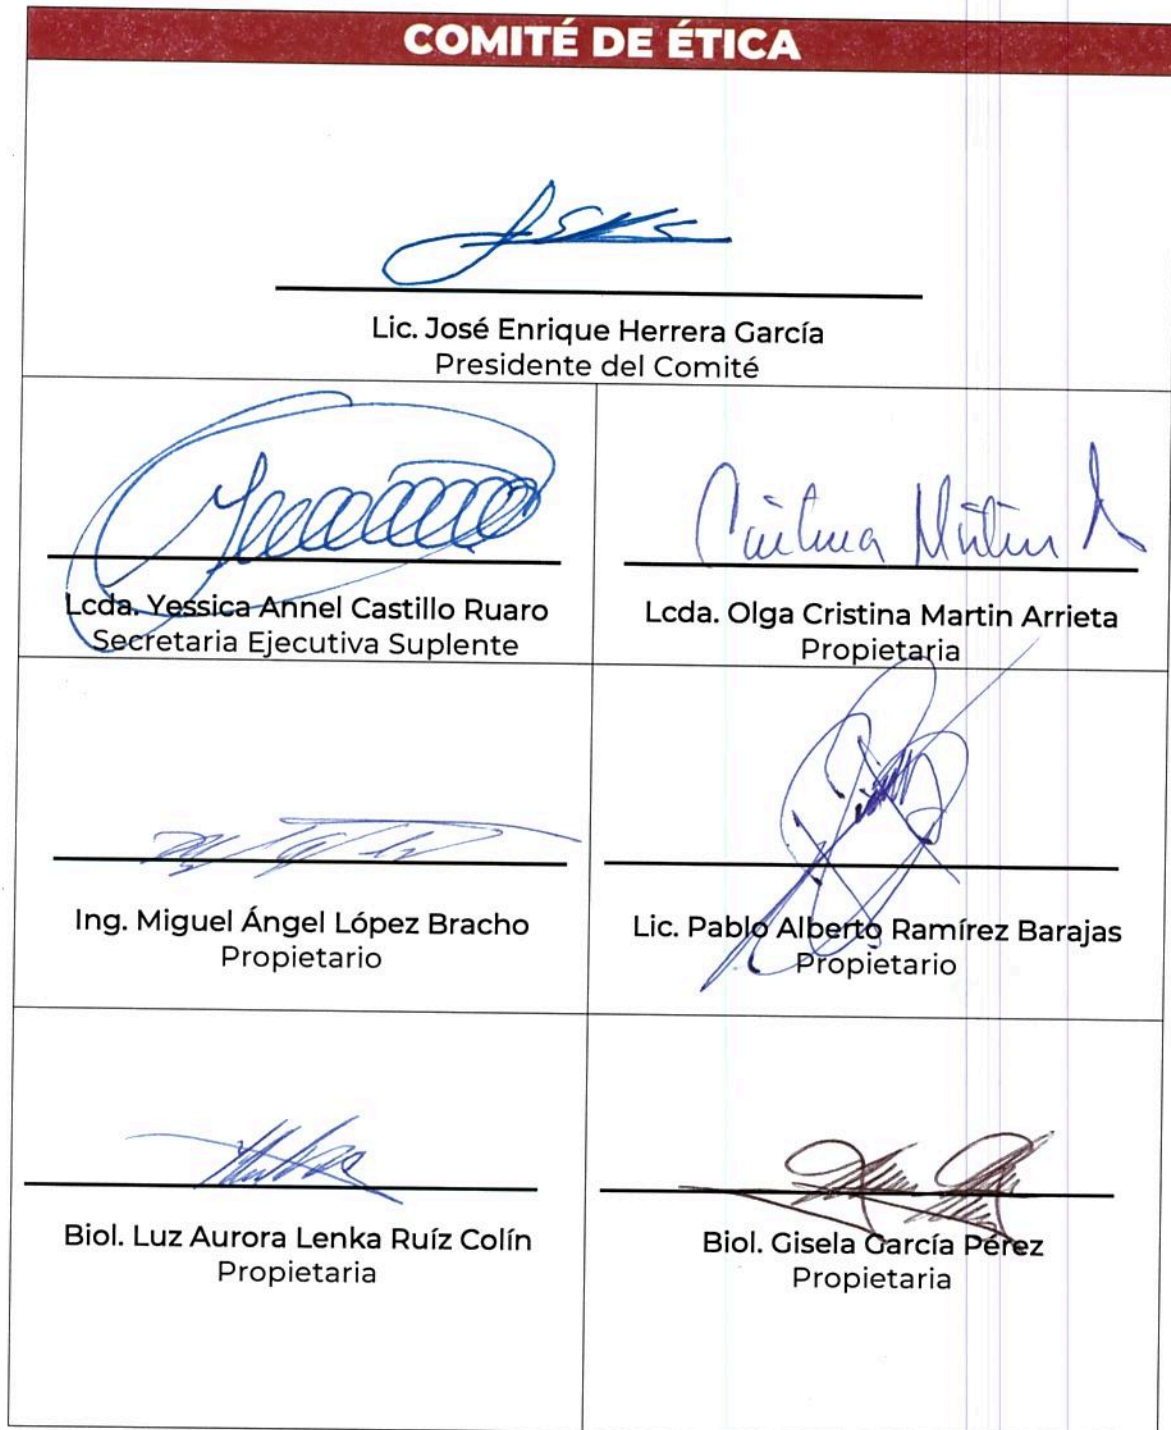 COMITÉ DE ÉTICA
Lic. José Enrique Herrera García
Presidente del Comité
Lcda. Yessica Annel Castillo Ruaro
Secretaria Ejecutiva Suplente
Lcda. Olga Cristina Martin Arrieta
Propietaria
Ing. Miguel Ángel López Bracho
Propietario
Lic. Pablo Alberto Ramírez Barajas
Propietario
Biol. Luz Aurora Lenka Ruíz Colín
Propietaria
Biol. Gisela García Pérez
Propietaria